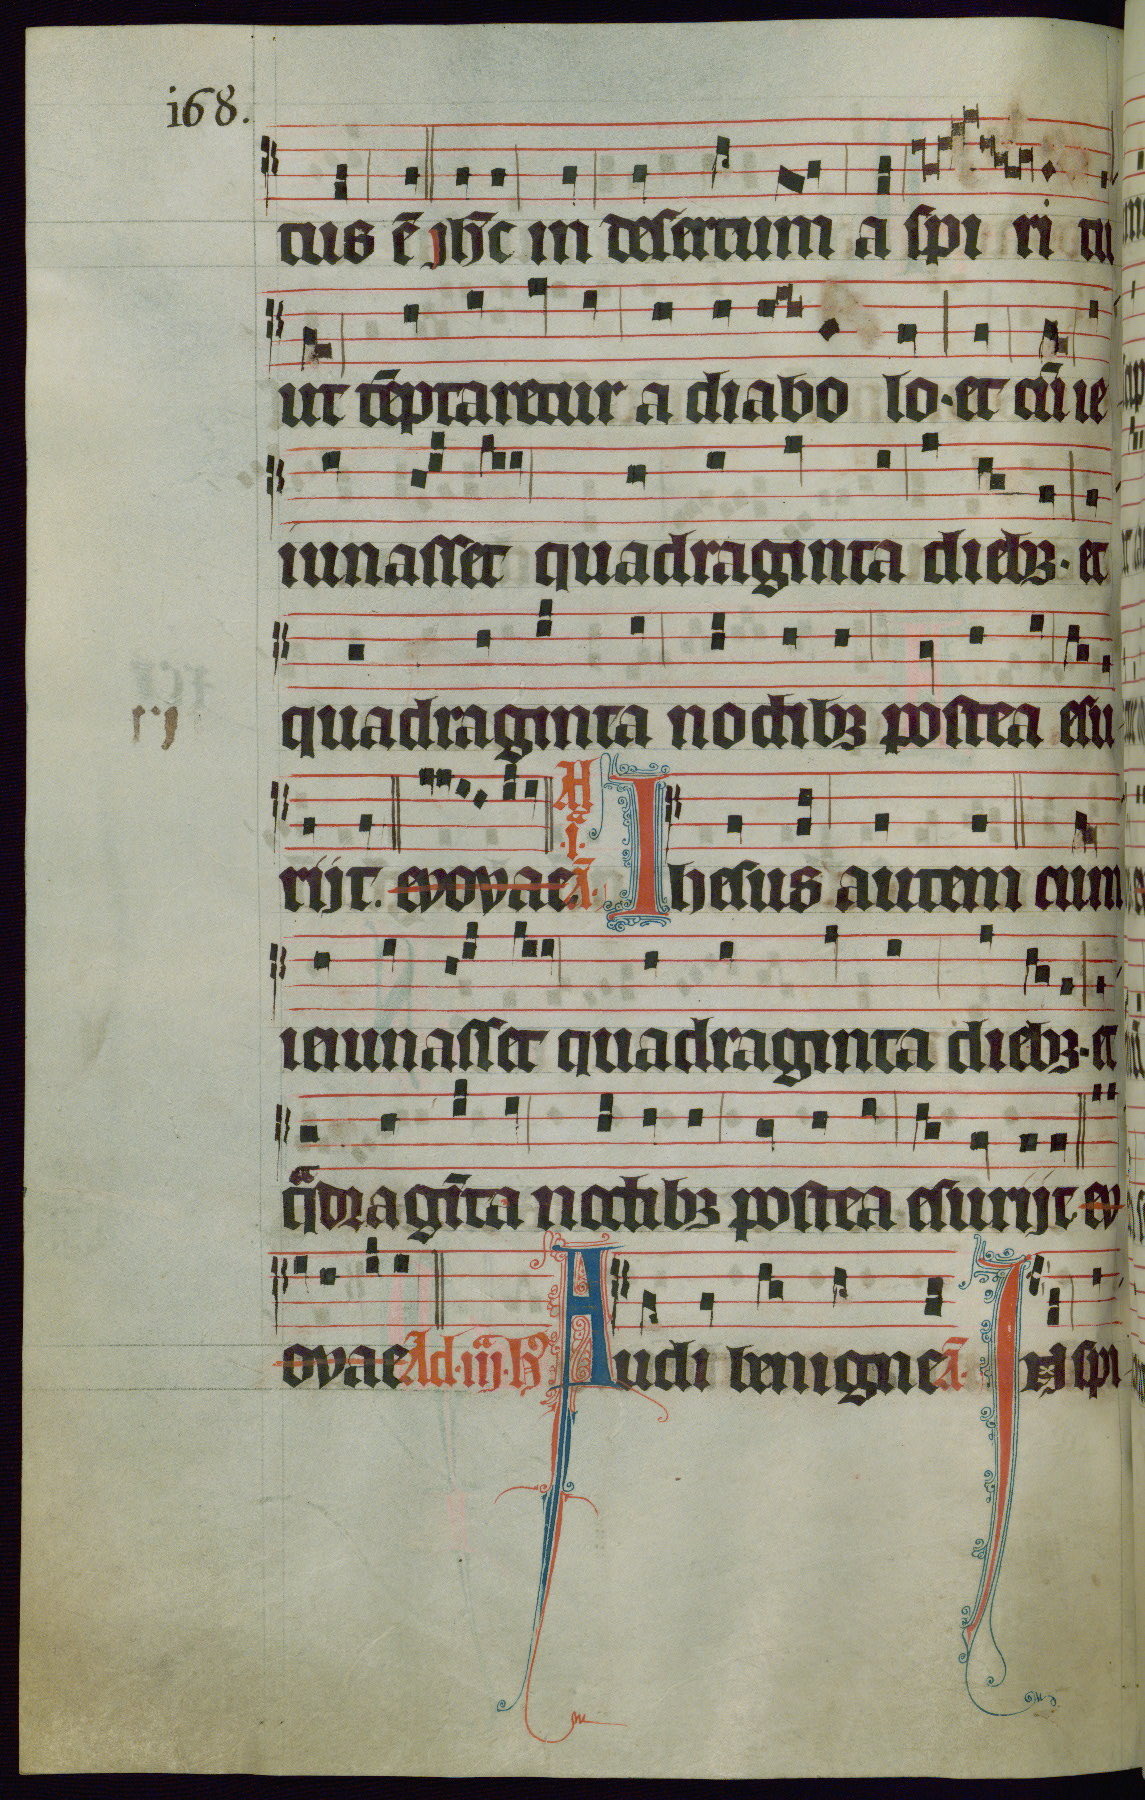 i68.
tus ē jħc in desertum a spi ri tu
ut tēptaretur a diabo lo· et cū ie
iunasset quadraginta diebꝫ· et
quadraginta noctibꝫ postea esu
rijt. evovae Ad .i. ā. Ihesus autem cum
ieiunasset quadraginta diebꝫ· et
qͣdragīta noctibꝫ postea esurijt ev
ovae Ad·iijͣ·h̄ Audi benigne ā. IN spi